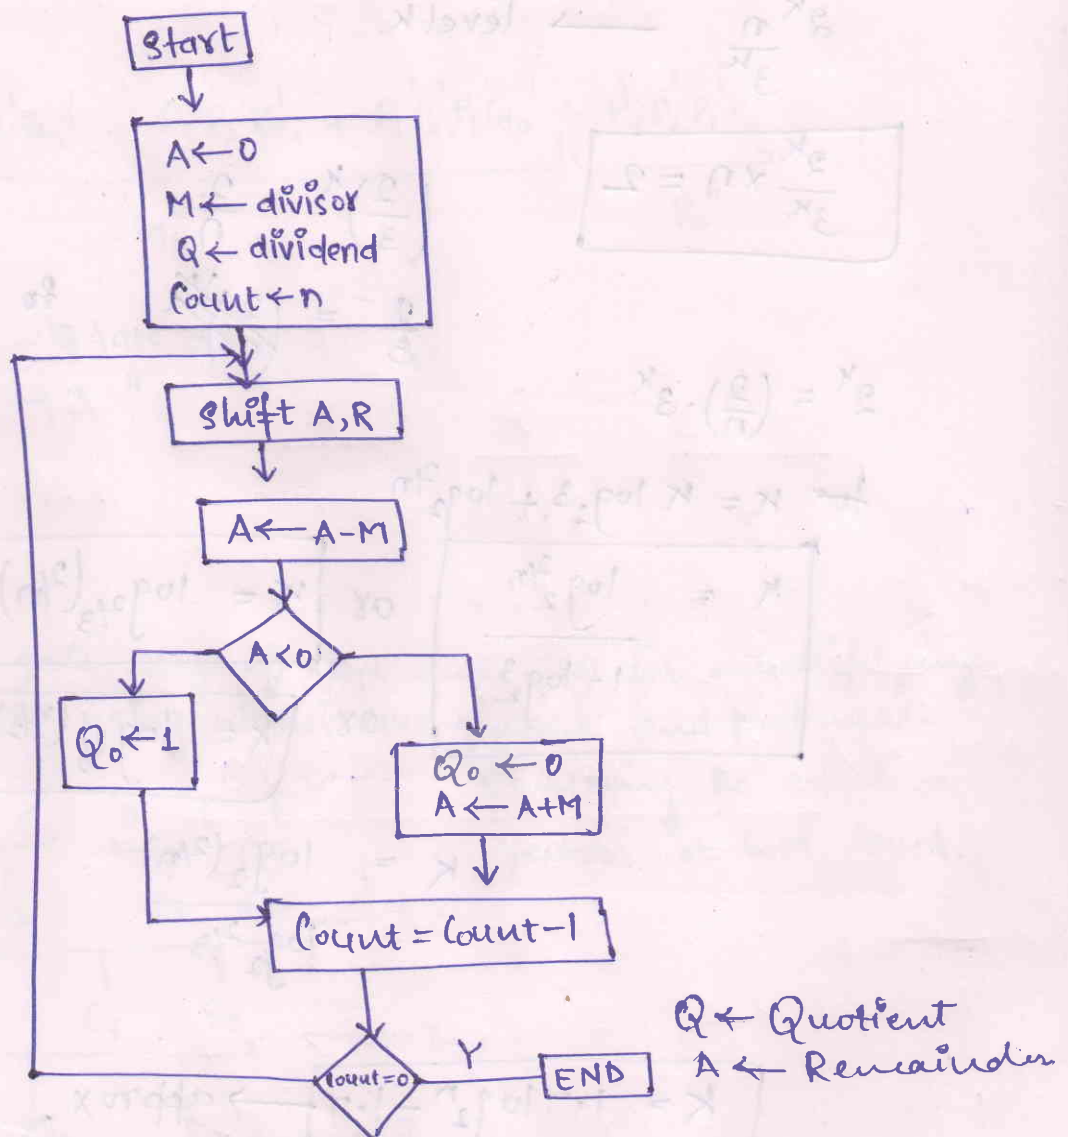 Start
A ← 0
M ← divisor
Q ← dividend
Count ← n
Shift A, R
A ← A-M
A<0
Q₀ ← 1
Q₀ ← 0
A ← A+M
Count = Count-1
Count=0
Y
END
Q ← Quotient
A ← Remainder